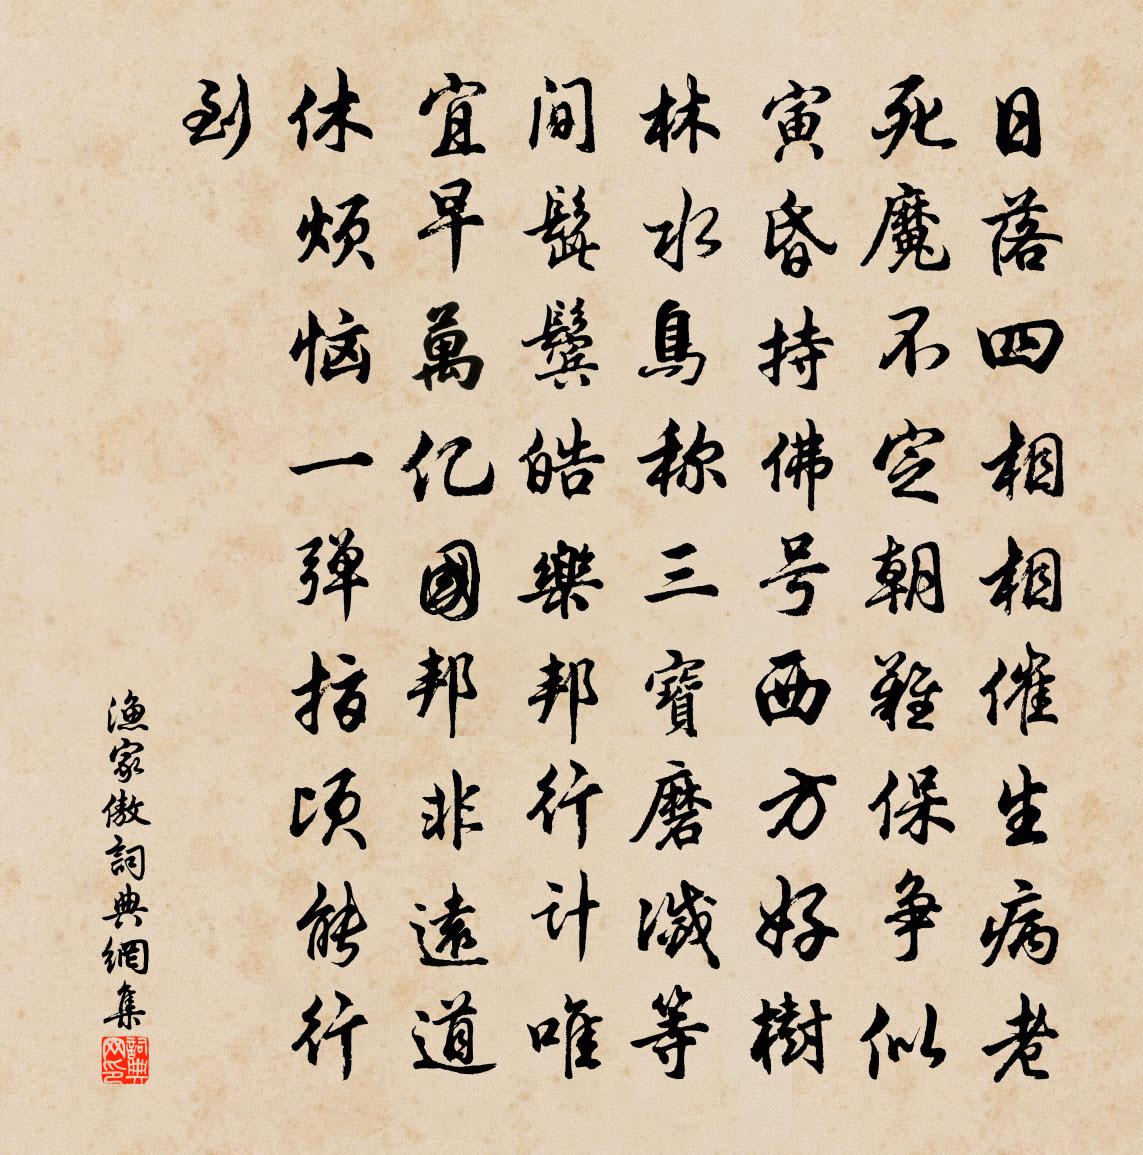 日落四相相催生病老
死魔不定朝難保争似
寅昏持佛号西方好樹
林水鳥称三寶磨滅等
间髭鬓皓樂邦行计唯
宜早萬亿國邦非遠道
休烦恼一弹指顷能行
到
渔家傲詞典網集
詞典网印